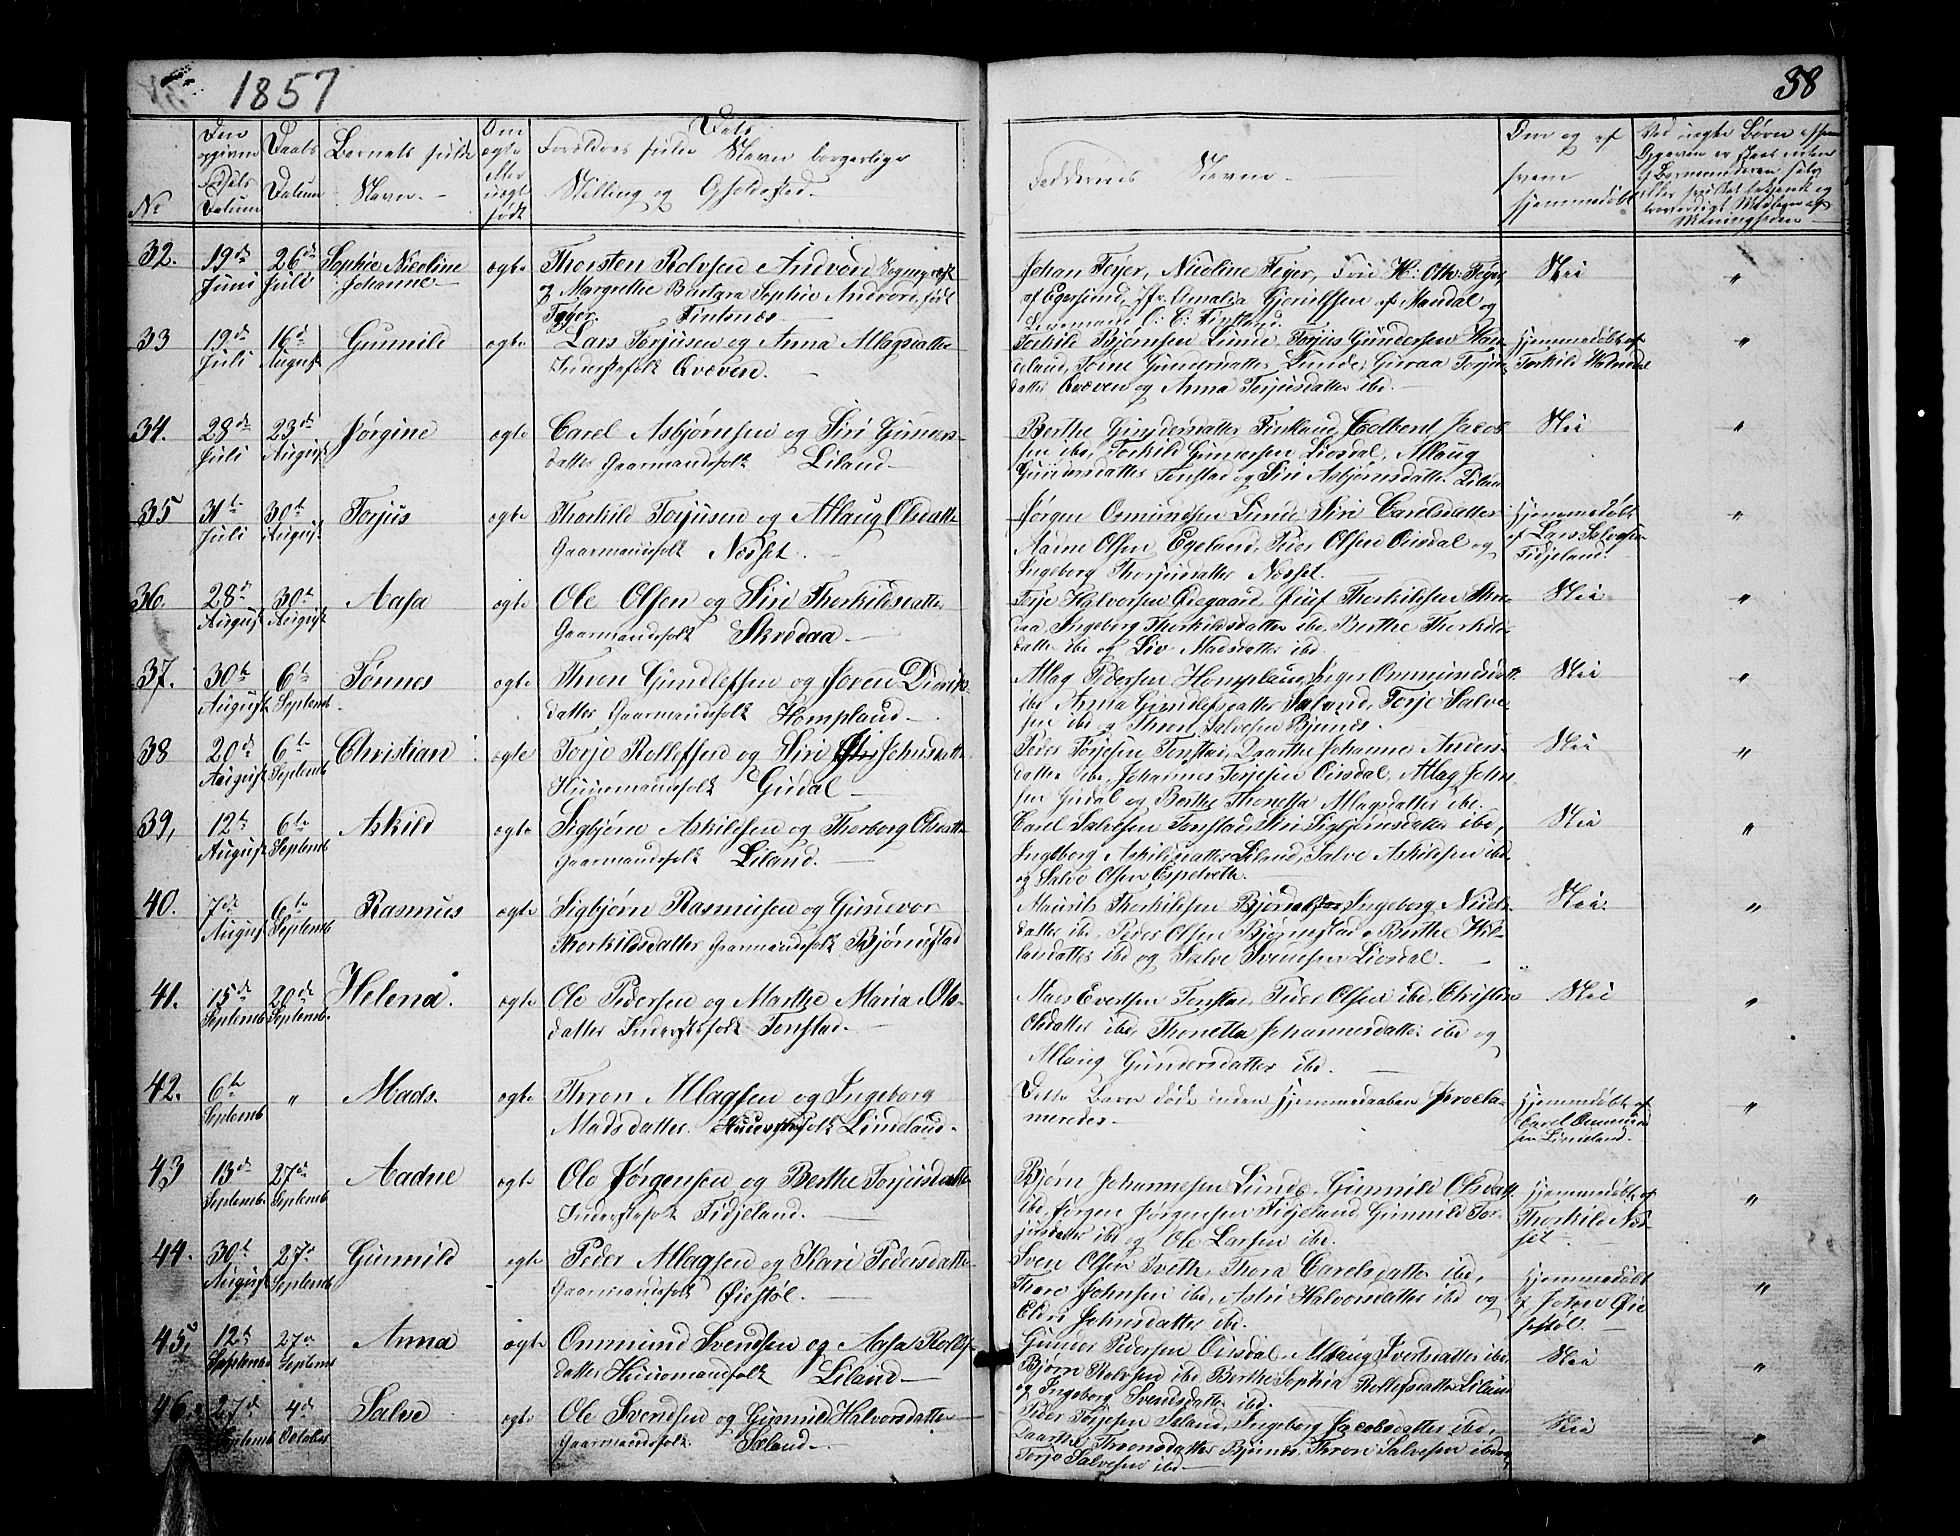 1857
38
No
Den opgivne Fødsels Datum
Daabs Datum
Barnets fulde Navn.
Om ægte eller uægte født
Forældres fulde Navn borgerlige Stilling og Opholdssted.
Faddernes Navne.
Om og af hvem hjemmedøbt
32. 19de Juni 26de Juli Sophie Nicoline Johanne ægte
Thorsten Rolvsen Andvord Sogneprest
og Margrethe Barbara Sophie Andvord, født
Feyer. Fintsnæs
Johan Feyer, Nicoline Feyer, H: Oth: Feyer,
af Egersund, Jfr. Amalia Gjerulfsen af Mandal og
C: C: Finkland.
Nei
"
33 19de Juli 16de August Gunnild ægte
Lars Torjusen og Anna Atlagsdatter
Inderstefolk Qvæven.
Torkild Bjørnsen Lunde, Torjus Gundersen
Tone Gundersdatter Lunde, Guroa Torjus-
datter Qvæven og Anna Torjusdatter ibd.
hjemmedøbt af
Torkild
"
34. 28de Juli 23de August Jørgine ægte
Carel Asbjørnsen og Siri Gunders-
datter Gaarmandsfolk Liland
Berthe Gundersdatter Finkland, Tolbent Jacob-
sen ibd, Torkild Gundersen Liosdal, Atlaug
Gundersdatter Tonstad og Siri Asbjørnsdatter Liland
Nei
"
35 31te Juli 30te August Torjus ægte
Thorkild Torjusen og Atlaug Olsdatter
Gaarmandsfolk Næsset.
Jørgen Osmundsen Lunde, Siri Carelsdatter
Aanen Olsen Egeland, Peder Olsen Ousdal og
Ingeborg Thorjusdatter Næsset.
hjemmedøbt
af Lars Salvesen
Fidjeland.
"
36. 28de August 30te August Aasa ægte
Ole Olsen og Siri Thorkildsdatter
Gaarmandsfolk Skredaa
Torje Halvorsen Ødegaard, Øuf Thorkildsen Skre-
daa, Ingeborg Thorkildsdatter ibd, Berthe Thorkilds-
datter ibd og Liv Madsdatter ibd.
Nei
"
37. 30te August 6te Septemb. Tønnes ægte
Thron Gundlefsen og Soren Didrik-
datter Gaarmandsfolk Hompland
Atlag Pedersen Hompland, Siger Ommundsdatt.
ibd. Anna Gundlefsdatter Sæland, Torje Salve-
sen ibd og Thron Salvesen Bjunes.
Nei
"
38 20de August 6te Septemb Christian ægte
Torje Rollefsen og Siri Johnsdatt.
Huusmandsfolk Gudal
Peder Torjesen Tonstad, Daarthe Johanne Anders-
datter ibd, Johannes Torjesen Ousdal, Atlag John-
sen Gudal og Berthe Thonetta Atlagsdatter ibd.
Nei
"
39, 12te August 6te Septemb Askild ægte
Sigbjørn Askildsen og Thorborg Olsdatt.
Gaarmandsfolk Liland.
Carel Salvesen Tonstad, Siri Sigbjørnsdatter ibd,
Ingeborg Askildsdatter Liland, Salve Askildsen ibd.
og Salve Olsen Espetveth.
Nei
"
40. 7de August 6te Septemb Rasmus ægte
Sigbjørn Rasmusen og Gunevor
Thorkildsdatter Gaarmandsfolk Bjørnestad
Maurits Thorkildsen Bjørnestad, Ingeborg Niels-
datter ibd, Peder Olsen Bjørnestad, Berthe
ibd og Salve Svendsen Liosdal.
Nei
"
41. 15de Septemb 20de Septemb. Helena. ægte
Ole Pedersen og Marthe Maria Ols-
datter Inderstfolk Tonstad.
Mads Evertsen Tonstad, Peder Olsen ibd, Christine
Olsdatter ibd, Thonetta Johannesdatter ibd og
Atlaug Gundersdatter ibd.
Nei
"
42. 6te Septemb " Mads. ægte
Thron Atlagsen og Ingeborg
Madsdatter. Inderstfolk Lindeland.
Dette Barn døde inden Hjemmedaaben procla-
meredes.
hjemmedøbt af
Carel Ommund-
sen Lindeland.
"
43 13de Septemb. 27de Septemb Aadne ægte
Ole Jørgensen og Berthe Torjusdatter
Inderstefolk Fidjeland.
Bjørn Johannesen Lunde, Gunnild Olsdatt.
ibd, Jørgen Jørgensen Fidjeland, Gunnild Tor-
jusdatter ibd og Ole Larsen ibd.
hjemmedøbt af
Thorkild Næs-
set.
"
44. 30te August 27de Septemb Gunnild ægte
Peder Atlagsen og Kari Pedersdatter
Gaarmandsfolk Øiestøl.
Sven Olsen Tveth, Thora Carelsdatter ibd,
Thore Johnsen ibd, Astri Halvorsdatter ibd og
Elin Johnsdatter ibd.
hjemmedøbt
af Øie
støl.
"
45, 12te Septemb 27de Septemb Anna ægte
Ommund Svendsen og Aasa Rollefs-
datter Huusmandsfolk Liland
Gunder Pedersen Ousdal, Atlaug Ivertsdatter ibd,
Bjørn Rolvsen ibd, Berthe Sophia Rollefsdatter Liland
og Ingeborg Svendsdatter ibd.
Nei
"
46. 27de Septemb 4de October Salve ægte
Ole Svendsen og Gunnild Halvorsdatter
Gaarmandsfolk Sæland.
Peder Torjesen Sæland, Ingeborg Jacobsdatter ibd,
Daarthe Thronsdatter Bjunes, Thron Salvesen ibd og
Torje Salvesen ibd
Nei
"